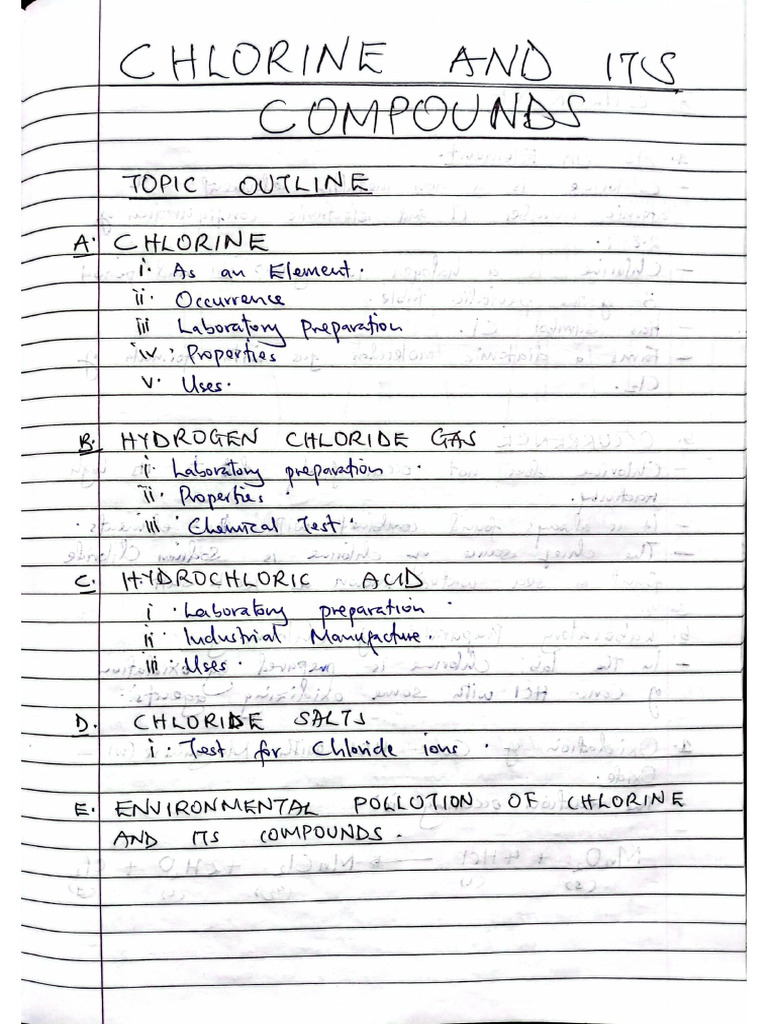 CHLORINE AND ITS
COMPOUNDS
TOPIC OUTLINE
A. CHLORINE
i. As an Element.
ii. Occurrence
iii Laboratory Preparation
iv. Properties
v. Uses.
B. HYDROGEN CHLORIDE GAS
i. Laboratory preparation.
ii. Properties.
iii. Chemical Test.
C. HYDROCHLORIC ACID
i. Laboratory preparation.
ii. Industrial Manufacture.
iii. Uses.
D. CHLORIDE SALTS
i. Test for Chloride ions.
E. ENVIRONMENTAL POLLUTION OF CHLORINE
AND ITS COMPOUNDS.